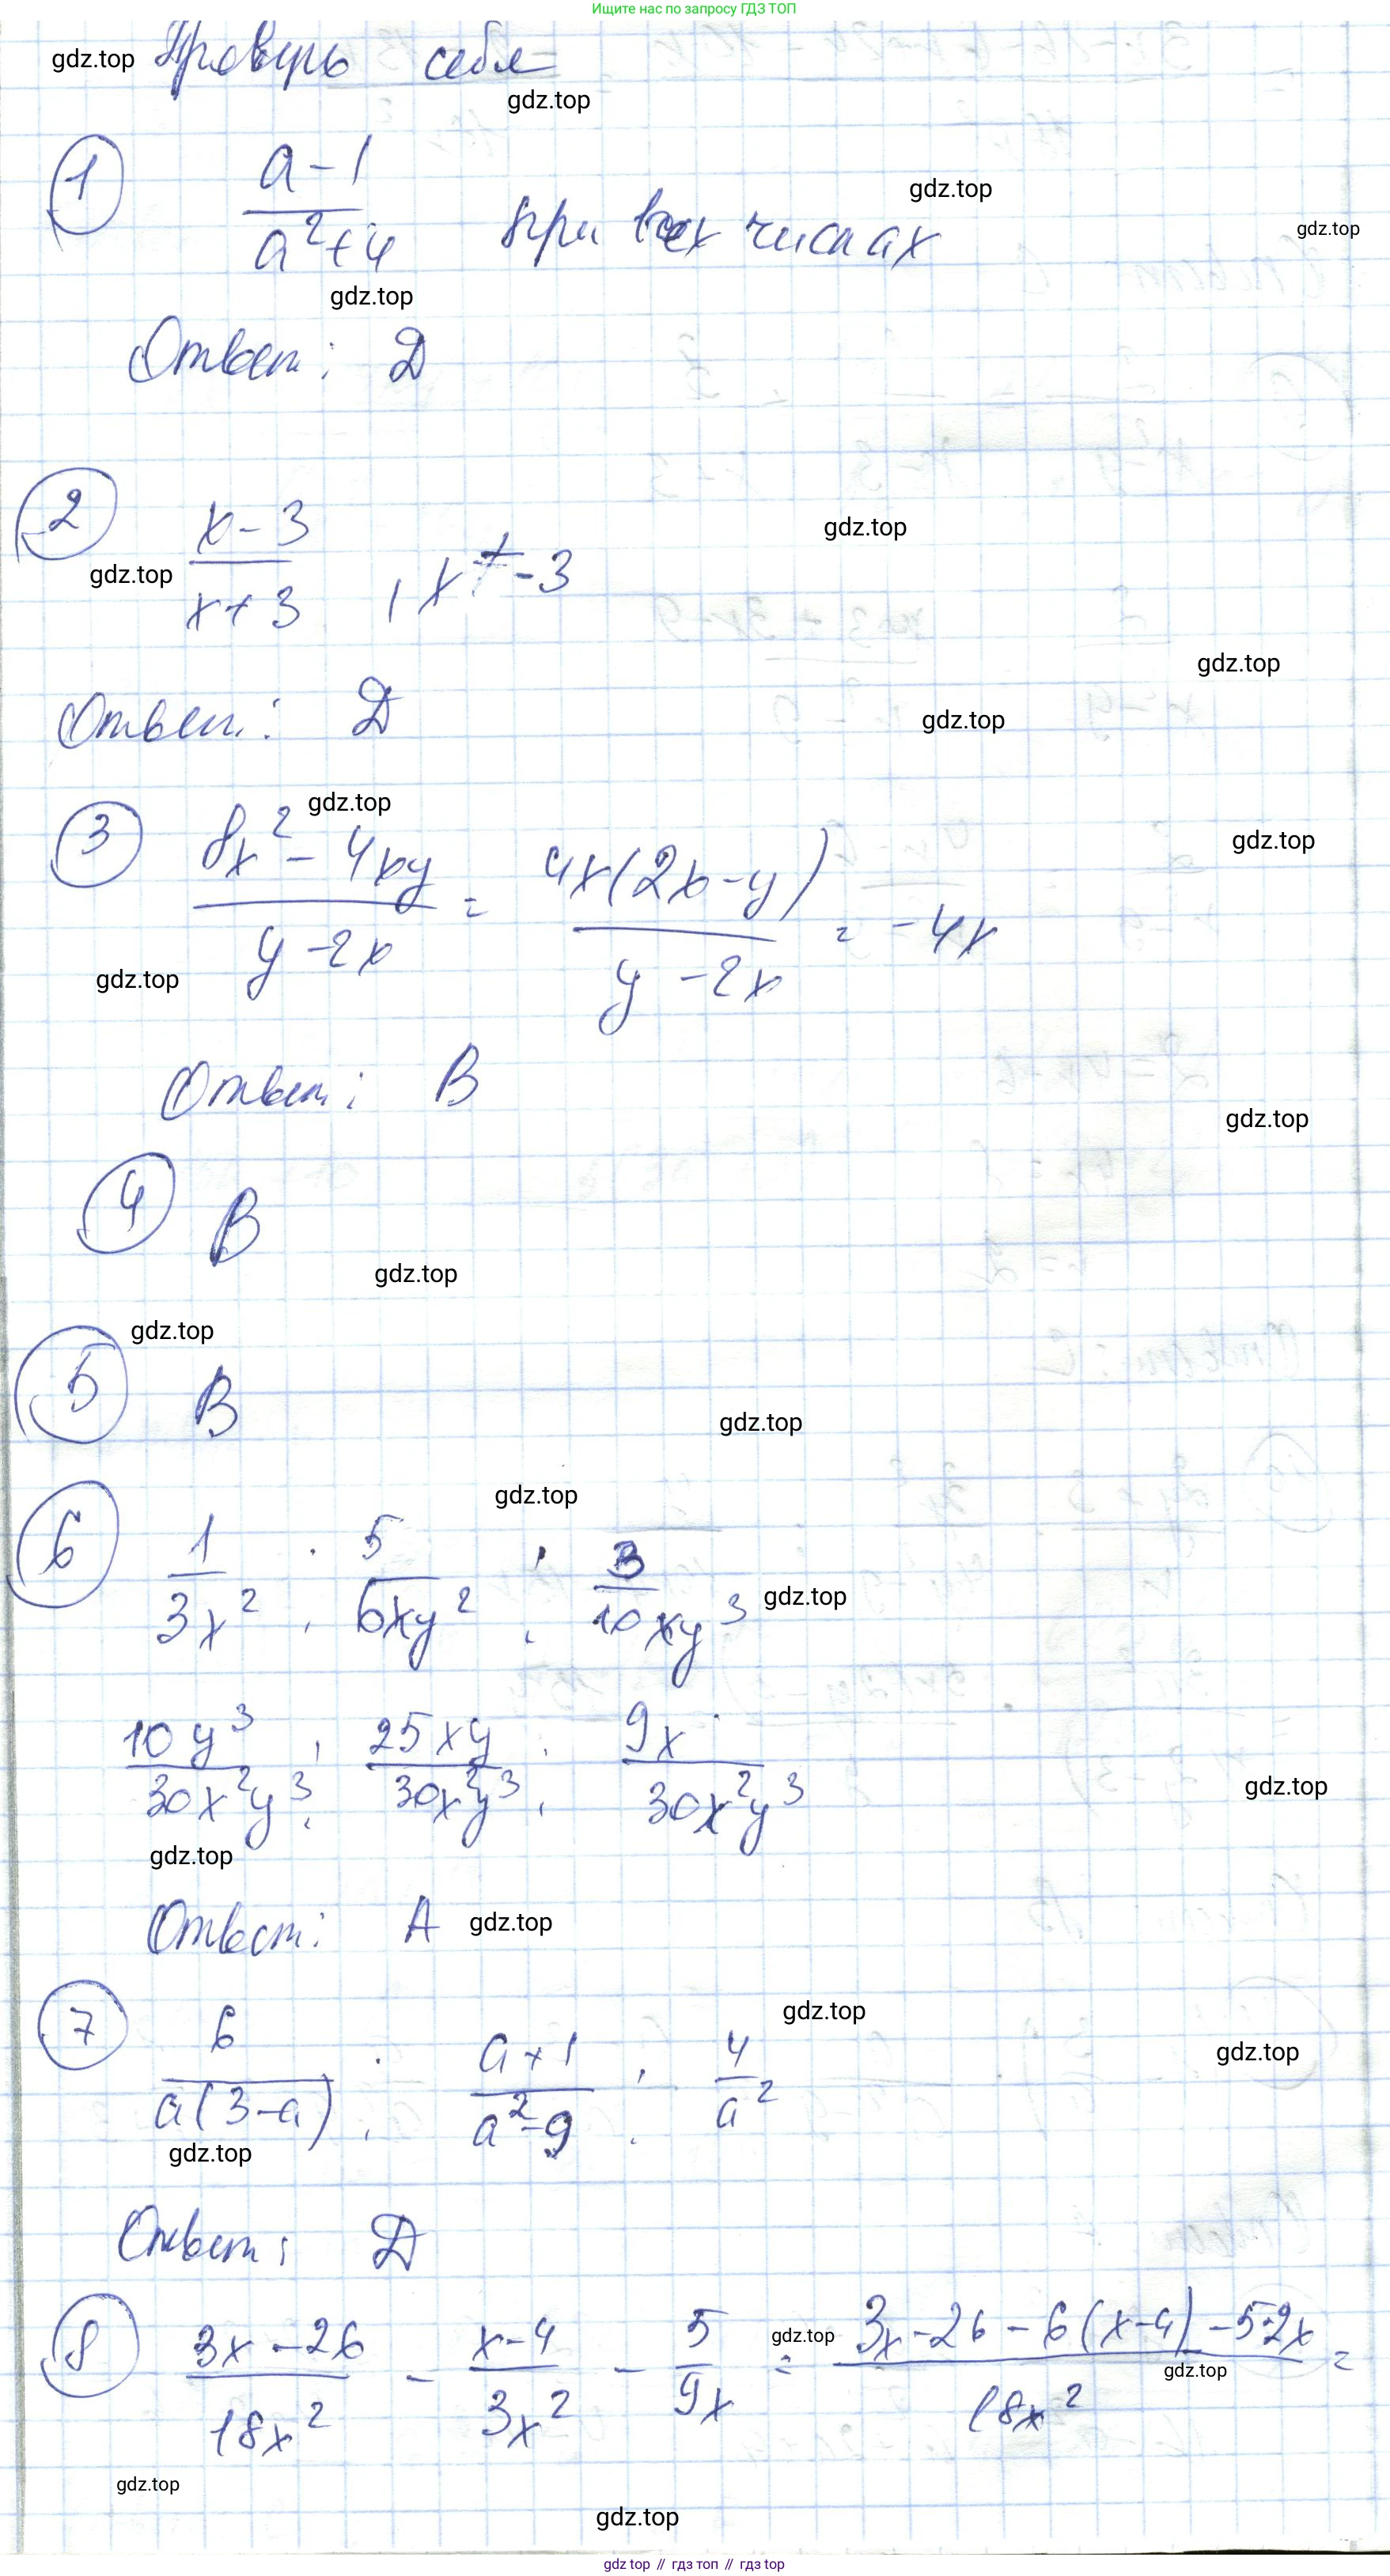 Ищите нас по запросу ГДЗ ТОП
gdz.top Проверь себя
gdz.top
1 (a-1)/(a²+4) при всех числах gdz.top
gdz.top
gdz.top
Ответ: D
2 (x-3)/(x+3), x≠-3 gdz.top
gdz.top
gdz.top
Ответ: D gdz.top
gdz.top
3 (8x²-4xy)/(y-2x) = (4x(2x-y))/(y-2x) = -4x
gdz.top
gdz.top
Ответ: B
gdz.top
4 B
gdz.top
gdz.top
5 B
gdz.top
gdz.top
6 1/(3x²) ; 5/(6xy²) ; 3/(10xy³) gdz.top
(10y³)/(30x²y³) ; (25xy)/(30x²y³) ; (9x)/(30x²y³)
gdz.top
gdz.top
Ответ: A gdz.top
7 6/(a(3-a)) ; (a+1)/(a²-9) ; 4/a²
gdz.top
gdz.top
gdz.top
Ответ: D
8 (3x-26)/(18x²) - (x-4)/(3x²) - 5/(9x) = (3x-26-6(x-4)-5·2x)/(18x²) =
gdz.top
gdz.top
gdz.top
gdz.top
gdz top // гдз топ // гдз top